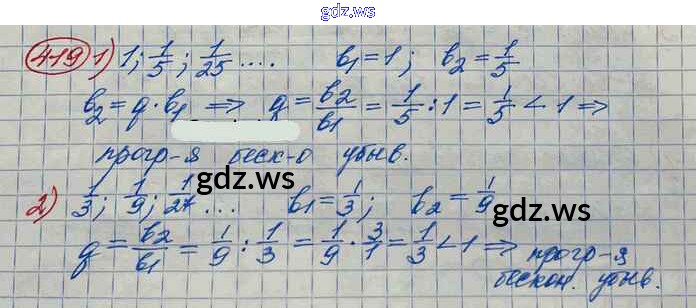 gdz.ws
419 1) 1; 1/5; 1/25 .... b₁ = 1; b₂ = 1/5
b₂ = q · b₁ ⇒ q = b₂/b₁ = 1/5 : 1 = 1/5 < 1 ⇒
прогр-я беск-о убыв.
gdz.ws
2) 1/3; 1/9; 1/27 ... b₁ = 1/3; b₂ = 1/9
gdz.ws
q = b₂/b₁ = 1/9 : 1/3 = 1/9 · 3/1 = 1/3 < 1 ⇒ прогр-я
бескон. убыв.